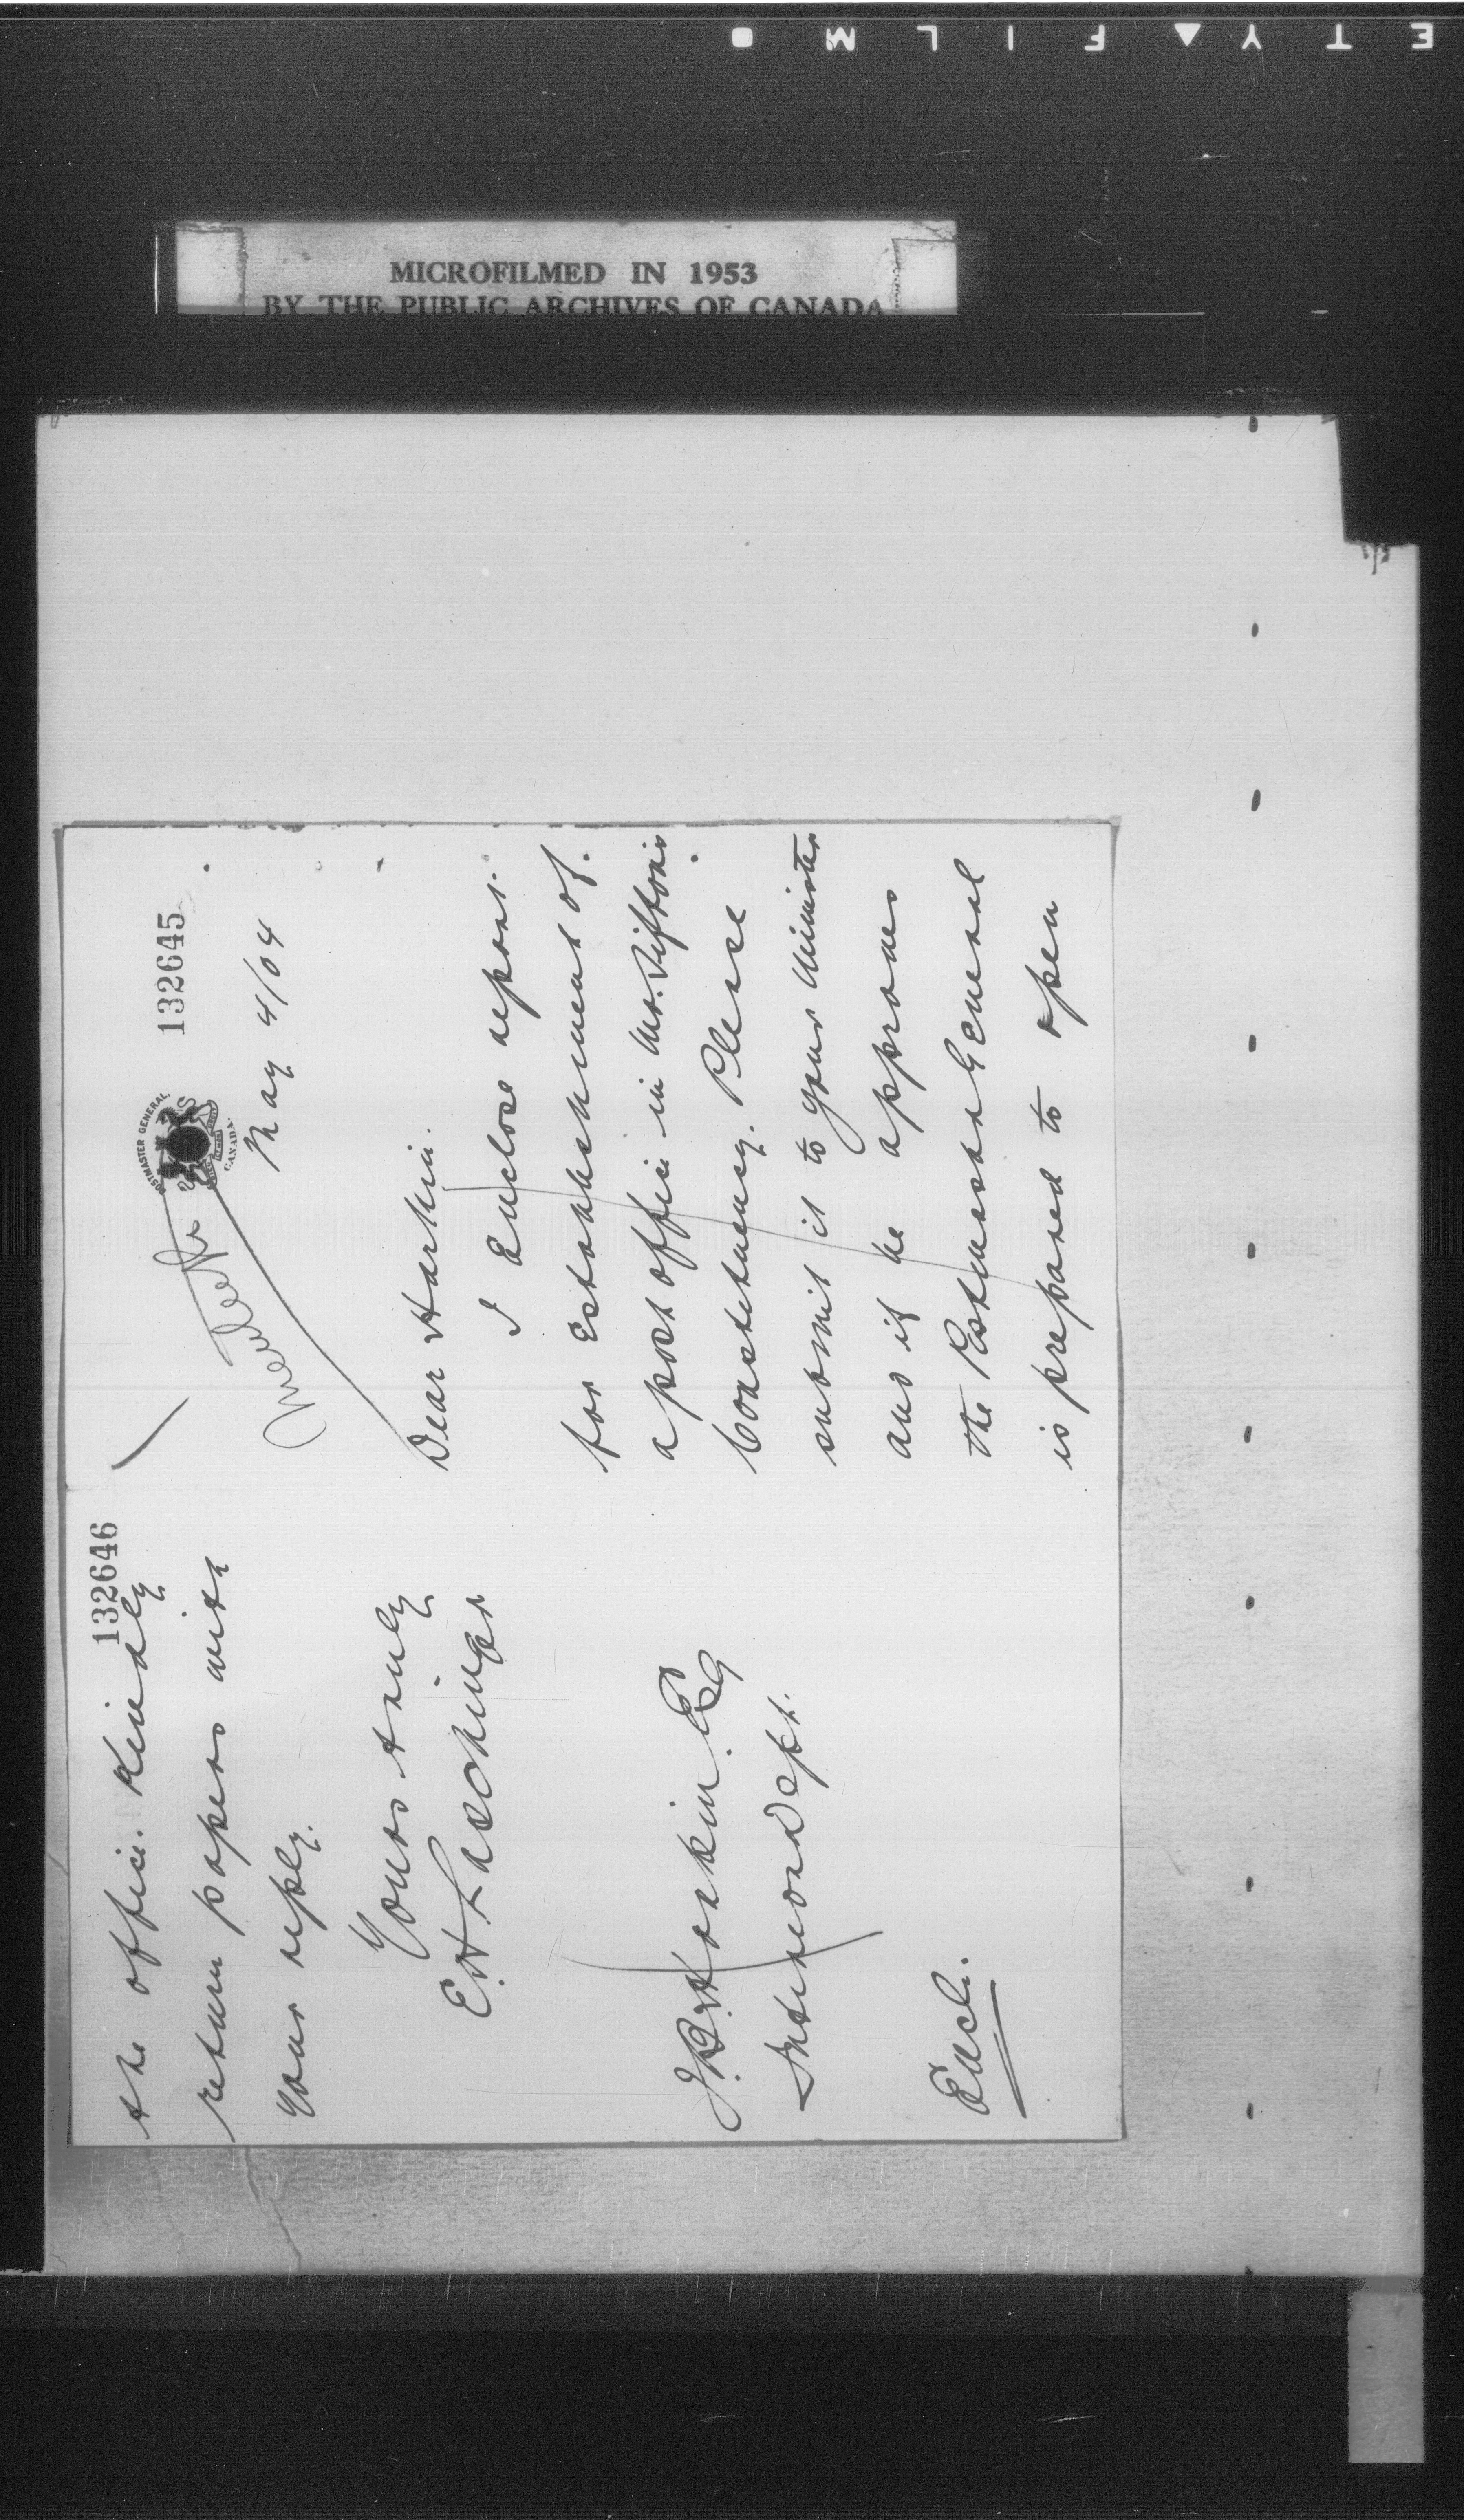 E T Y ▲ F I L M
MICROFILMED IN 1953
BY THE PUBLIC ARCHIVES OF CANADA
132645
POSTMASTER GENERAL
CANADA
May 4/04
Dear Harkin.
I Enclose report
for Establishment of
a post office in Mr. Sifton's
Constituency. Please
submit it to your Minister
and if he approves
the Postmaster General
is prepared to open
132646
the office. Kindly
return papers with
your reply.
Yours truly
E. H. Laschinger
J. B. Harkin. Esq
Interior Dept.
Encl.